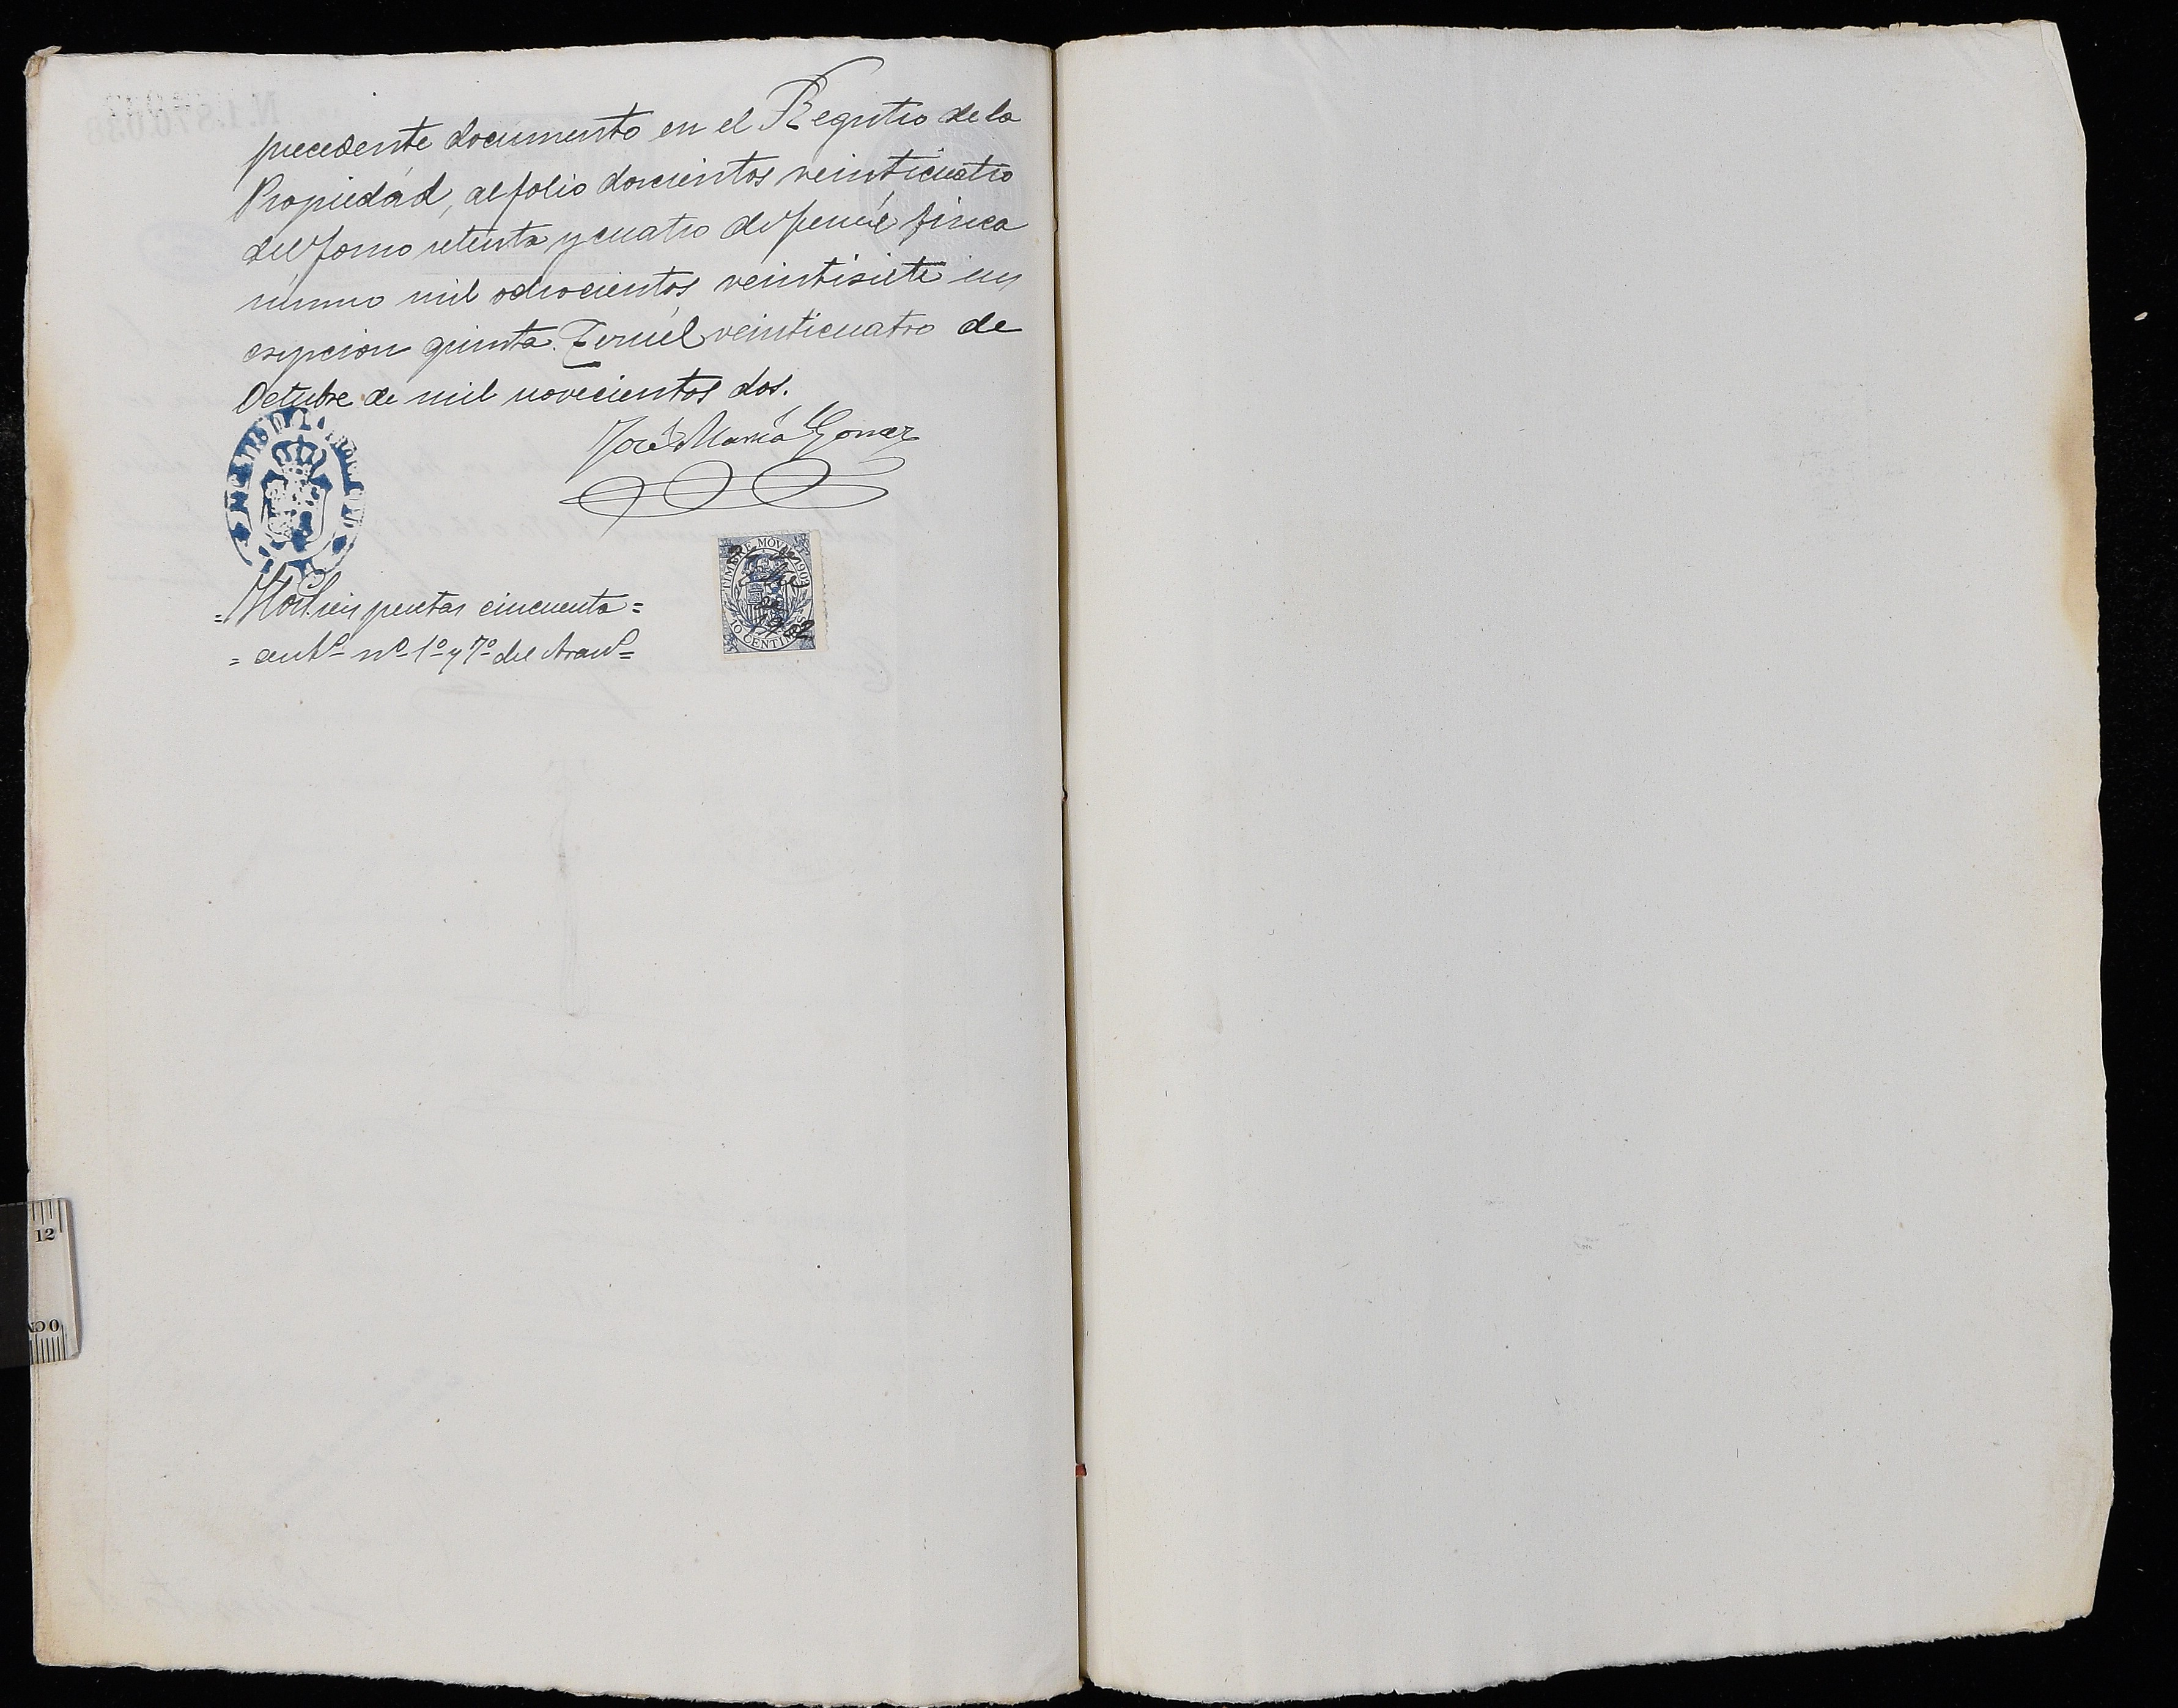 precedente documento en el Registro de la
Propiedad, al folio doscientos veinticuatro
del tomo setenta y cuatro de Teruel finca
número mil ochocientos veintisiete ins
cripcion quinta. Teruel veinticuatro de
Octubre de mil novecientos dos.
José María Gomez
TIMBRE MOVIL 1902
10 CENTIMOS
= Hon.s seis pesetas cincuenta =
= cent.s nos. 1º y 7º del Aran.l =
N.1.870.038
12